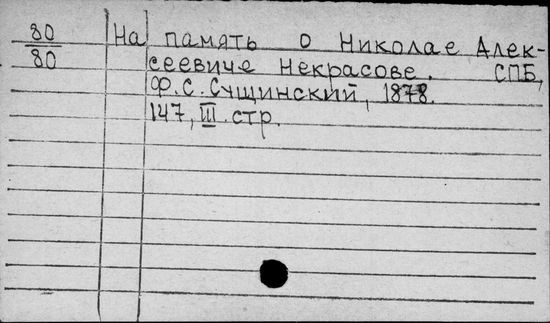 80
80
На память о Николае Алек-
сеевиче Некрасове. СПБ,
Ф.С.Сущинский, 1878.
147, III.стр.